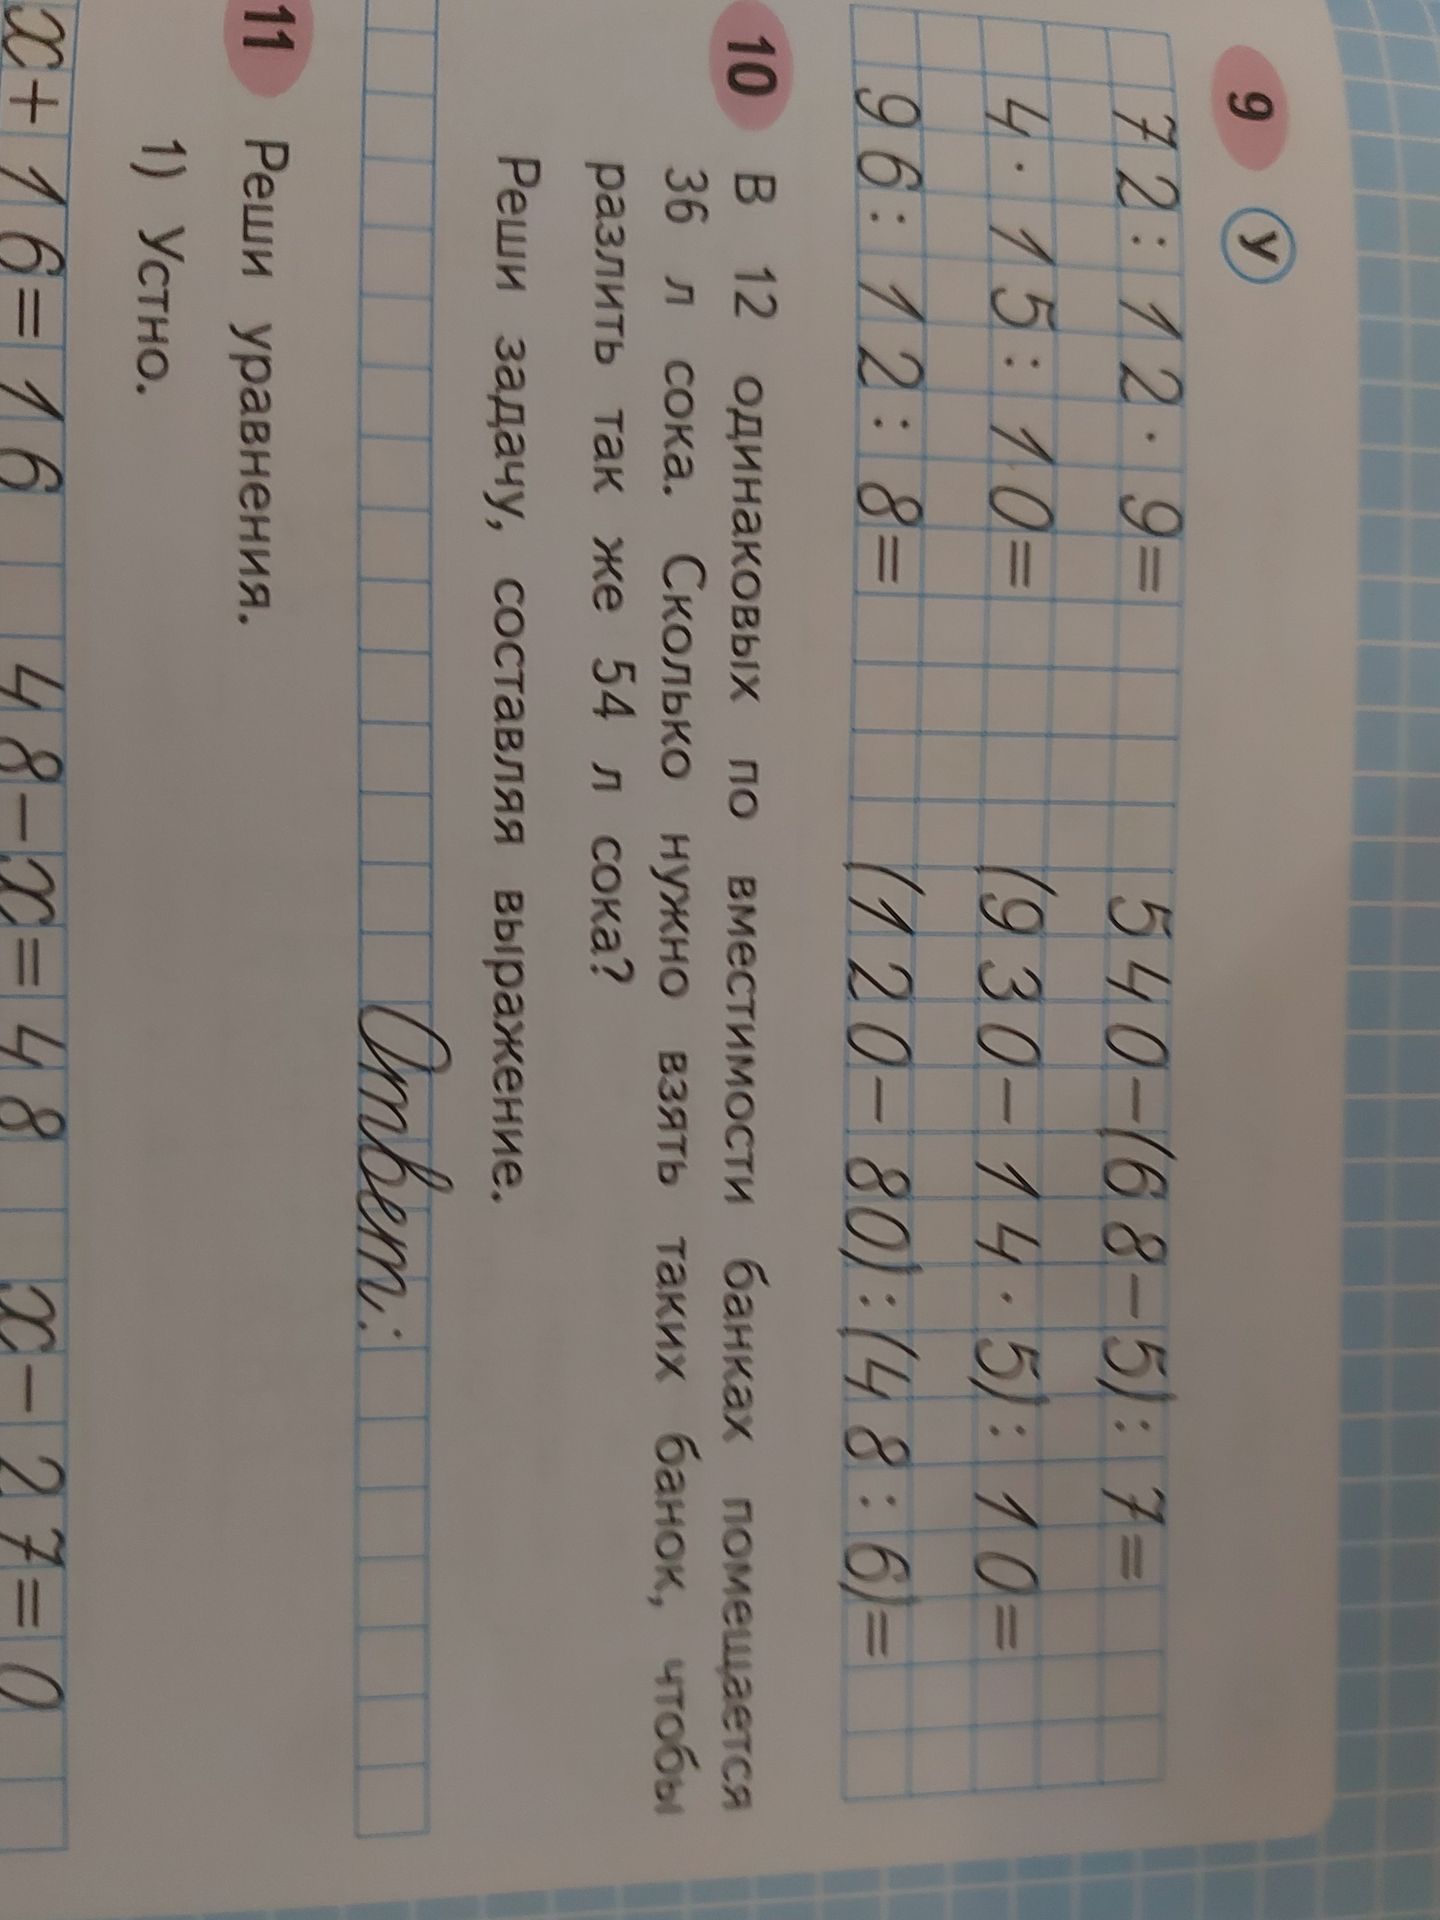 9 У
72:12·9= 540-(68-5):7=
4·15:10= (930-14·5):10=
96:12:8= (120-80):(48:6)=
10 В 12 одинаковых по вместимости банках помещается
36 л сока. Сколько нужно взять таких банок, чтобы
разлить так же 54 л сока?
Реши задачу, составляя выражение.
Ответ:
11 Реши уравнения.
1) Устно.
x+16=16 48-x=48 x-27=0